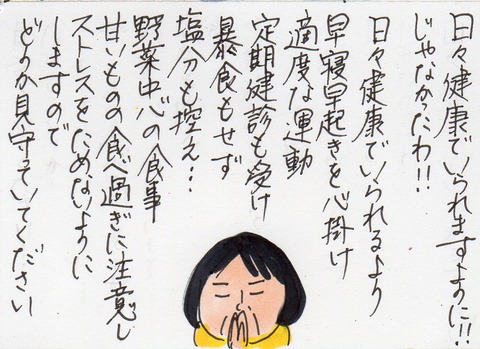 日々健康でいられますように!!
じゃなかったわ!!
日々健康でいられるより
早寝早起きを心掛け
適度な運動
定期健診も受け
暴食もせず
塩分も控え…
野菜中心の食事
甘いものの食べ過ぎに注意し
ストレスをためないように
しますので
どうか見守っていてください